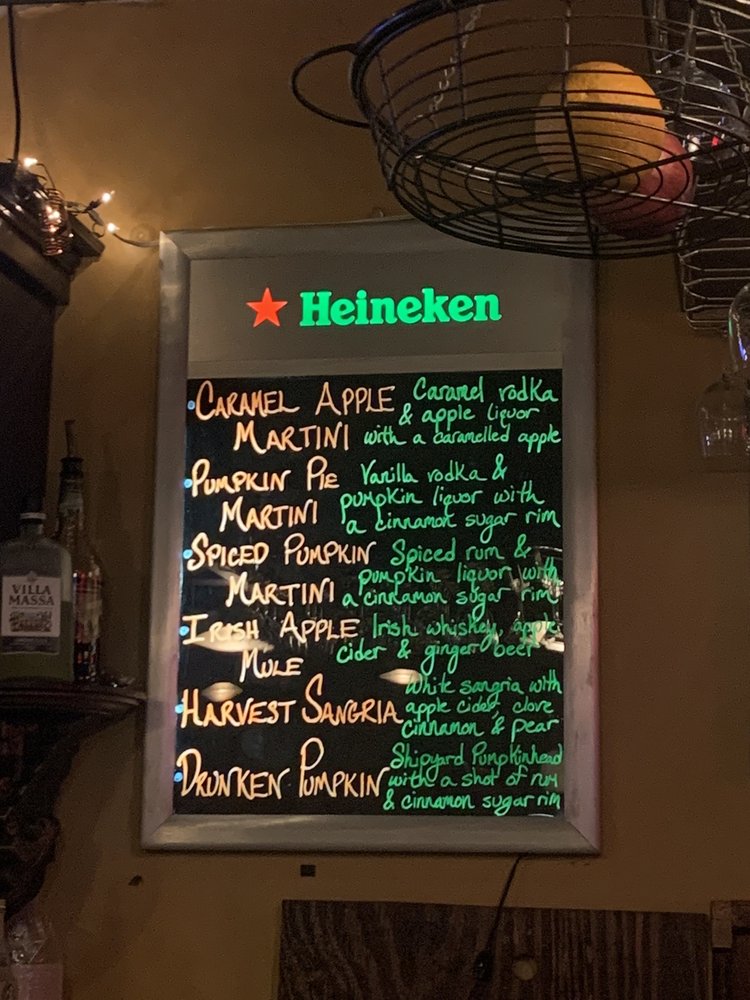 Heineken
CARAMEL APPLE Caramel vodka
& apple liquor
MARTINI with a caramelled apple
PUMPKIN PIE Vanilla vodka &
pumpkin liquor with
MARTINI a cinnamon sugar rim
SPICED PUMPKIN Spiced rum &
pumpkin liquor with
MARTINI a cinnamon sugar rim
IRISH APPLE Irish whiskey, apple
MULE cider & ginger beer
White sangria with
HARVEST SANGRIA apple cider, clove
cinnamon & pear
Shipyard Pumpkinhead
DRUNKEN PUMPKIN with a shot of rum
& cinnamon sugar rim
VILLA
MASSA